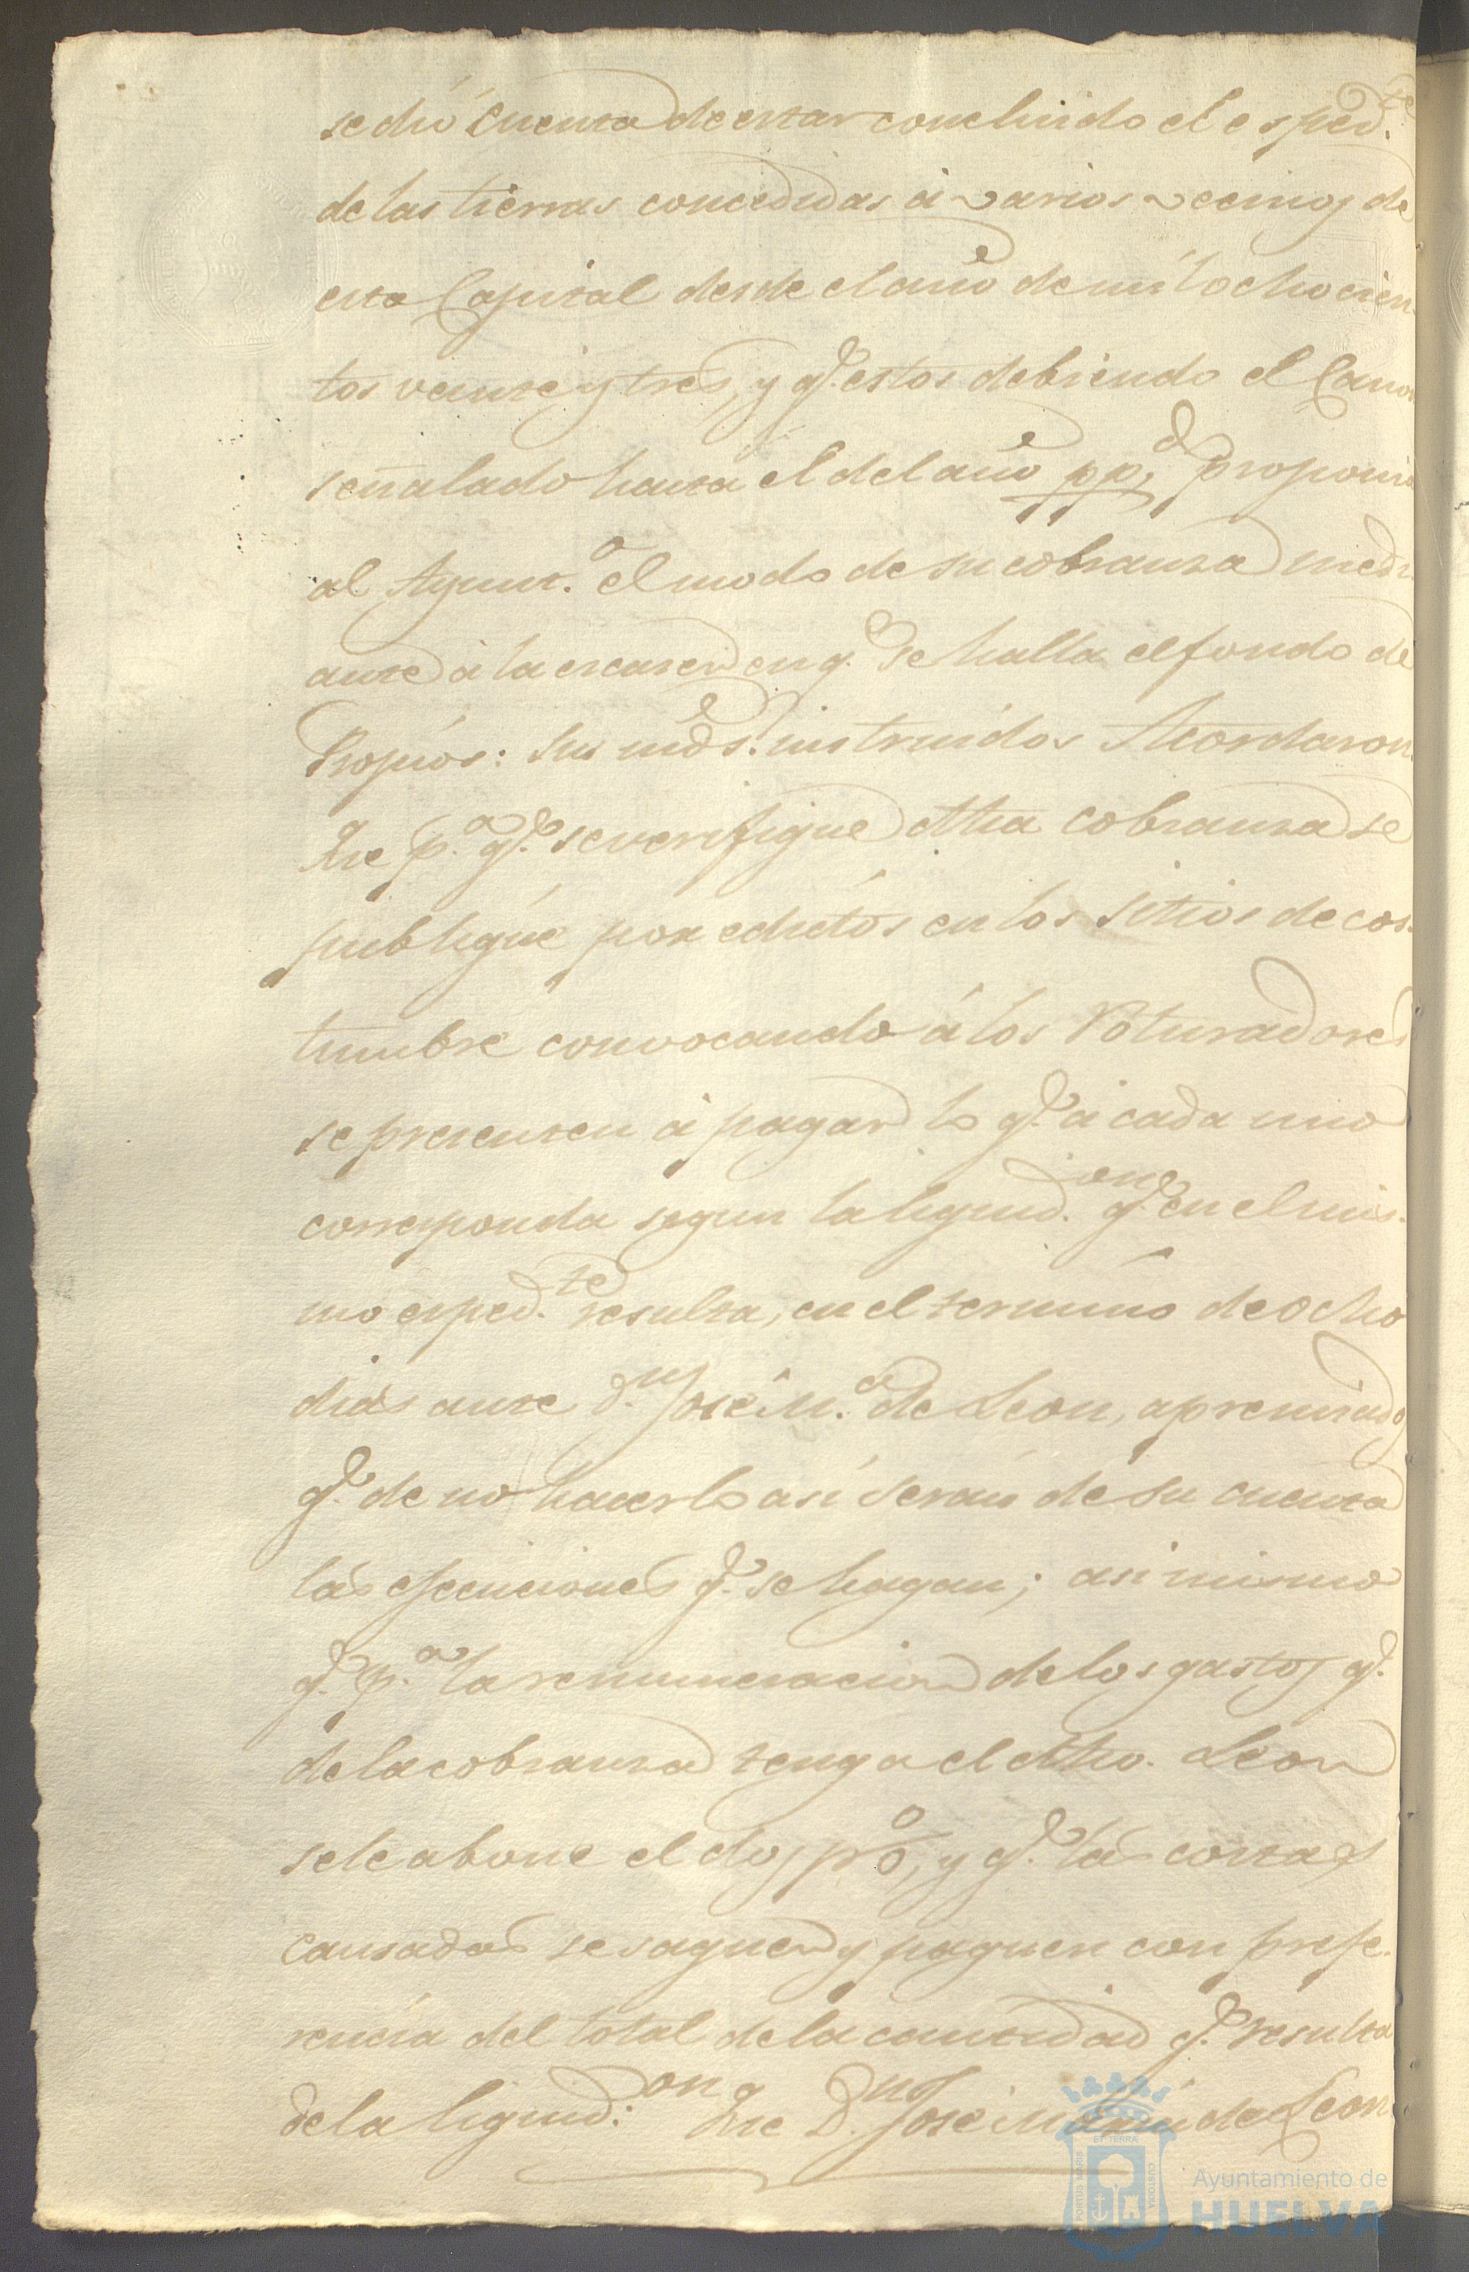 se dió Cuenta de estar concluido el esped.te
de las tierras concedidas á varios vecinos de
esta Capital desde el año de mil ochocien
tos veinte y tres, y q.e estos debiendo el Canon
señalado hasta el del año pp.do proponia
al Ayunt.o el modo de su cobranza medi
ante á la escasez en q.e se halla el fondo de
Propios: Sus mds. instruidos Acordaron
Que p.a q.e se verifique dha cobranza se
publique por edictos en los sitios de cos
tumbre convocando á los Roturadores
se presenten á pagar lo q.e á cada uno
corresponda segun la liquid.on q.e en el mis
mo esped.te resulta, en el termino de ocho
dias ante d.n José M.a de Leon, apremiados
q.e de no hacerlo así serán de su cuenta
las ejecuciones q.e se hagan; asi mismo
q.e p.a la remuneracion de los gastos q.e
de la cobranza tenga el dho. Leon
se le abone el dos p%, y q.e las costas
causadas se saquen y paguen con prefe
rencia del total de la cantidad q.e resulta
de la liquid.on Que D.n José María de Leon
PORTUS MARIS ET TERRAE CUSTODIA
Ayuntamiento de
HUELVA